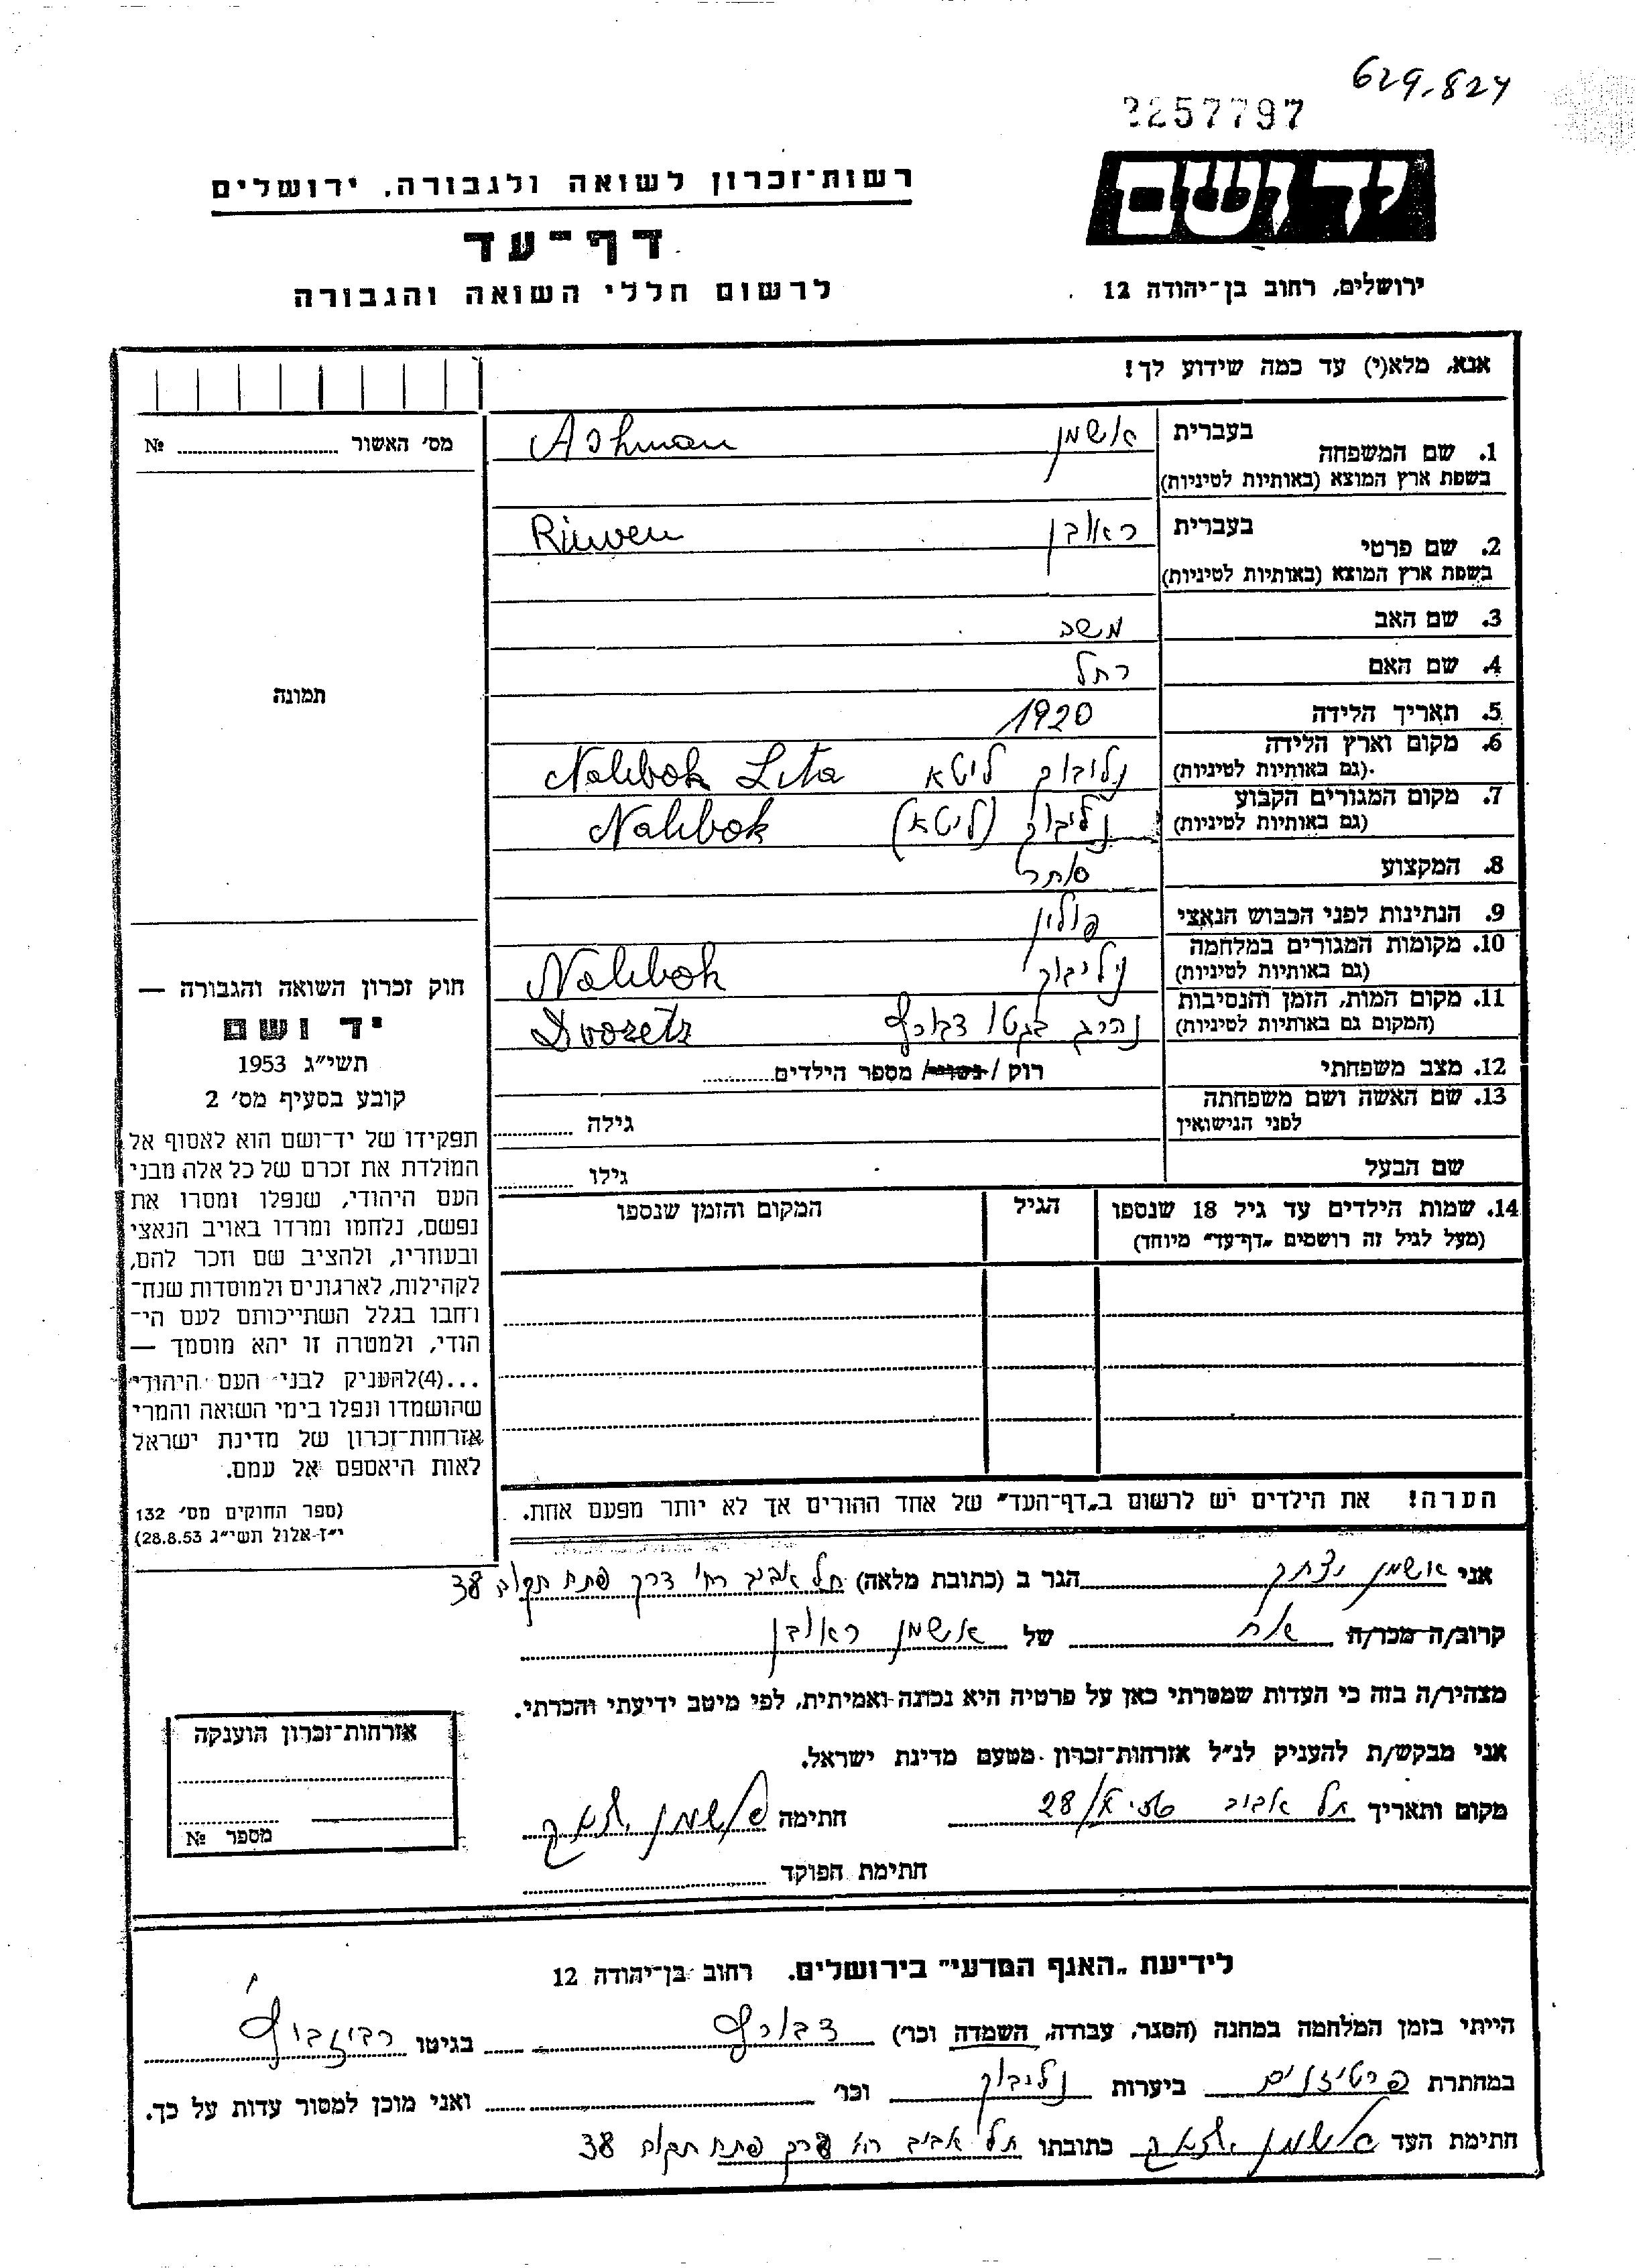 629.824
2257797
יד ושם
ירושלים, רחוב בן־יהודה 12
רשות־זכרון לשואה ולגבורה. ירושלים
דף־עד
לרשום חללי השואה והגבורה
אנא, מלא(י) עד כמה שידוע לך!
1. שם המשפחה בעברית אשמן Ashman
בשפת ארץ המוצא (באותיות לטיניות)
2. שם פרטי בעברית ראובן Riuven
בשפת ארץ המוצא (באותיות לטיניות)
3. שם האב משה
4. שם האם רחל
5. תאריך הלידה 1920
6. מקום וארץ הלידה נליבוק ליטא Nalibok Lita
(גם באותיות לטיניות)
7. מקום המגורים הקבוע נליבוק (ליטא) Nalibok
(גם באותיות לטיניות)
8. המקצוע סוחר
9. הנתינות לפני הכבוש הנאצי פולין
10. מקומות המגורים במלחמה נליבוק Nalibok
(גם באותיות לטיניות)
11. מקום המות, הזמן והנסיבות נהרג בגטו דבורץ Dvoretz
(המקום גם באותיות לטיניות)
12. מצב משפחתי רוק / נשוי / מספר הילדים
13. שם האשה ושם משפחתה
לפני הנישואין גילה
שם הבעל גילו
14. שמות הילדים עד גיל 18 שנספו הגיל המקום והזמן שנספו
(מעל לגיל זה רושמים „דף־עד״ מיוחד)
הערה! את הילדים יש לרשום ב„דף־העד״ של אחד ההורים אך לא יותר מפעם אחת.
מס׳ האשור №
תמונה
חוק זכרון השואה והגבורה —
יד ושם
תשי״ג 1953
קובע בסעיף מס׳ 2
תפקידו של יד־ושם הוא לאסוף אל
המולדת את זכרם של כל אלה מבני
העם היהודי, שנפלו ומסרו את
נפשם, נלחמו ומרדו באויב הנאצי
ובעוזריו, ולהציב שם וזכר להם,
לקהילות, לארגונים ולמוסדות שנח־
רבו בגלל השתייכותם לעם הי־
הודי, ולמטרה זו יהא מוסמך —
...(4)להעניק לבני העם היהודי
שהושמדו ונפלו בימי השואה והמרי
אזרחות־זכרון של מדינת ישראל
לאות היאספם אל עמם.
(ספר החוקים מס׳ 132
י״ז־אלול תשי״ג 28.8.53)
אני אשמן יצחק הגר ב (כתובת מלאה) תל אביב רח׳ דרך פתח תקוה 38
קרוב/ה מכר/ה אח של אשמן ראובן
מצהיר/ה בזה כי העדות שמסרתי כאן על פרטיה היא נכונה ואמיתית, לפי מיטב ידיעתי והכרתי.
אני מבקש/ת להעניק לנ״ל אזרחות־זכרון מטעם מדינת ישראל.
מקום ותאריך תל אביב 28/ חתימה אשמן יצחק
חתימת הפוקד
אזרחות־זכרון הוענקה
מספר №
לידיעת „האגף המדעי״ בירושלים. רחוב בן־יהודה 12
הייתי בזמן המלחמה במחנה (הסגר, עבודה, השמדה וכו׳) דבורץ בגיטו
במחתרת פרטיזנים ביערות נליבוק וכו׳ ואני מוכן למסור עדות על כך.
חתימת העד אשמן יצחק כתובתו תל אביב דרך פתח תקוה 38